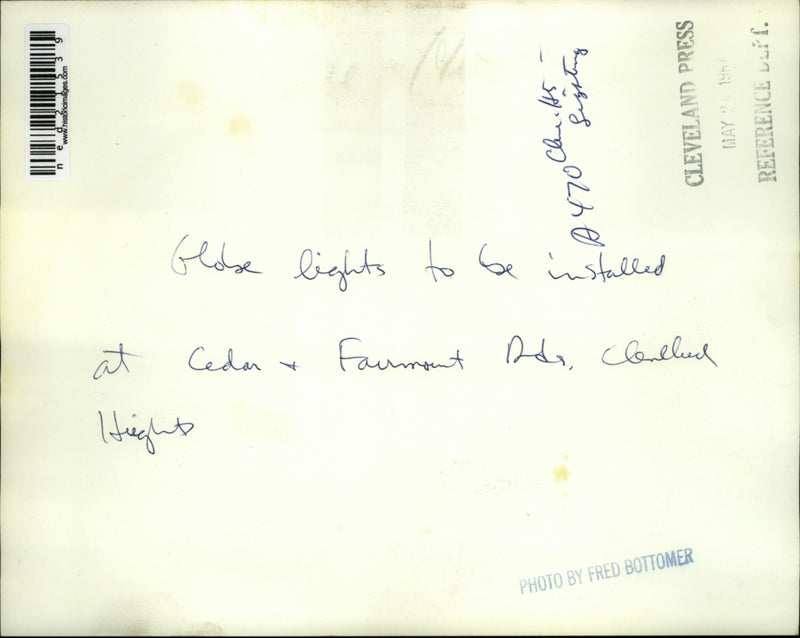 Globe lights to be installed
at Cedar + Fairmount Rds. Cleveland
Heights
A 470 Cleve. Hts -
Lighting
CLEVELAND PRESS
MAY 2 196
REFERENCE DEPT.
PHOTO BY FRED BOTTOMER
ned21539
www.historicimages.com